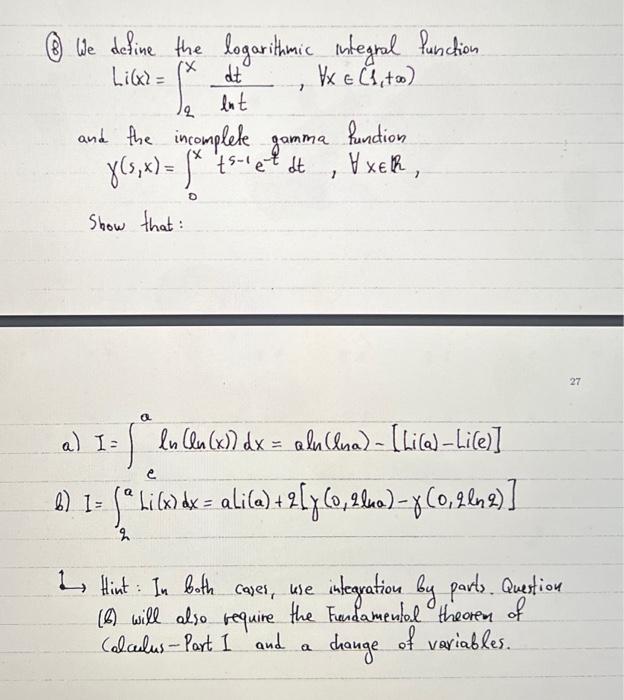 ⑧ We define the logarithmic integral function
Li(x) = ∫₂ˣ dt / ln t , ∀x ∈ (1,+∞)
and the incomplete gamma function
γ(s,x) = ∫₀ˣ t^(s-1) e^(-t) dt , ∀ x∈ℝ,
Show that:
27
a) I = ∫ₑᵃ ln(ln(x)) dx = a ln(lna) - [Li(a) - Li(e)]
b) I = ∫₂ᵃ Li(x) dx = aLi(a) + 2[γ(0,2lna) - γ(0,2ln2)]
↳ Hint: In both cases, use integration by parts. Question
(b) will also require the Fundamental theorem of
Calculus - Part I and a change of variables.